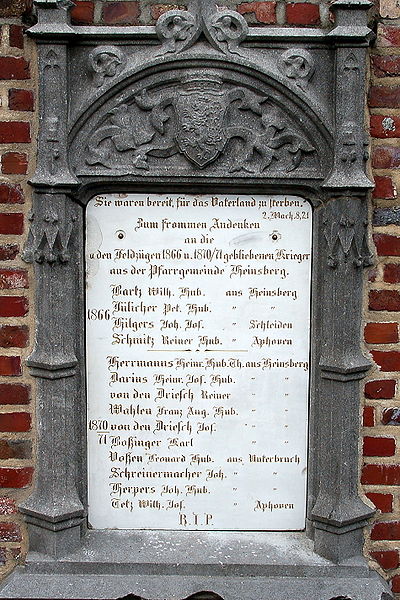 "Sie waren bereit, für das Vaterland zu sterben."
2. Mach. 8, 21
Zum frommen Andenken
an die
i. den Feldzügen 1866 u. 1870/71 gebliebenen Krieger
aus der Pfarrgemeinde Heinsberg.
Bartz Wilh. Hub. aus Heinsberg
Jülicher Pet. Hub. " "
1866
Hilgers Joh. Jos. " Schleiden
Schmitz Reiner Hub. " Aphoven
Herrmanns Heinr. Hub. Th. aus Heinsberg
Darius Heinr. Jos. Hub. " "
von den Driesch Reiner " "
Wahlen Franz Aug. Hub. " "
1870 von den Driesch Jos. " "
71 Boßinger Karl " "
Voßen Leonard Hub. aus Unterbruch
Schreinermacher Joh. " "
Herpers Joh. Hub. " "
Tetz Wilh. Jos. " Aphoven
R. I. P.